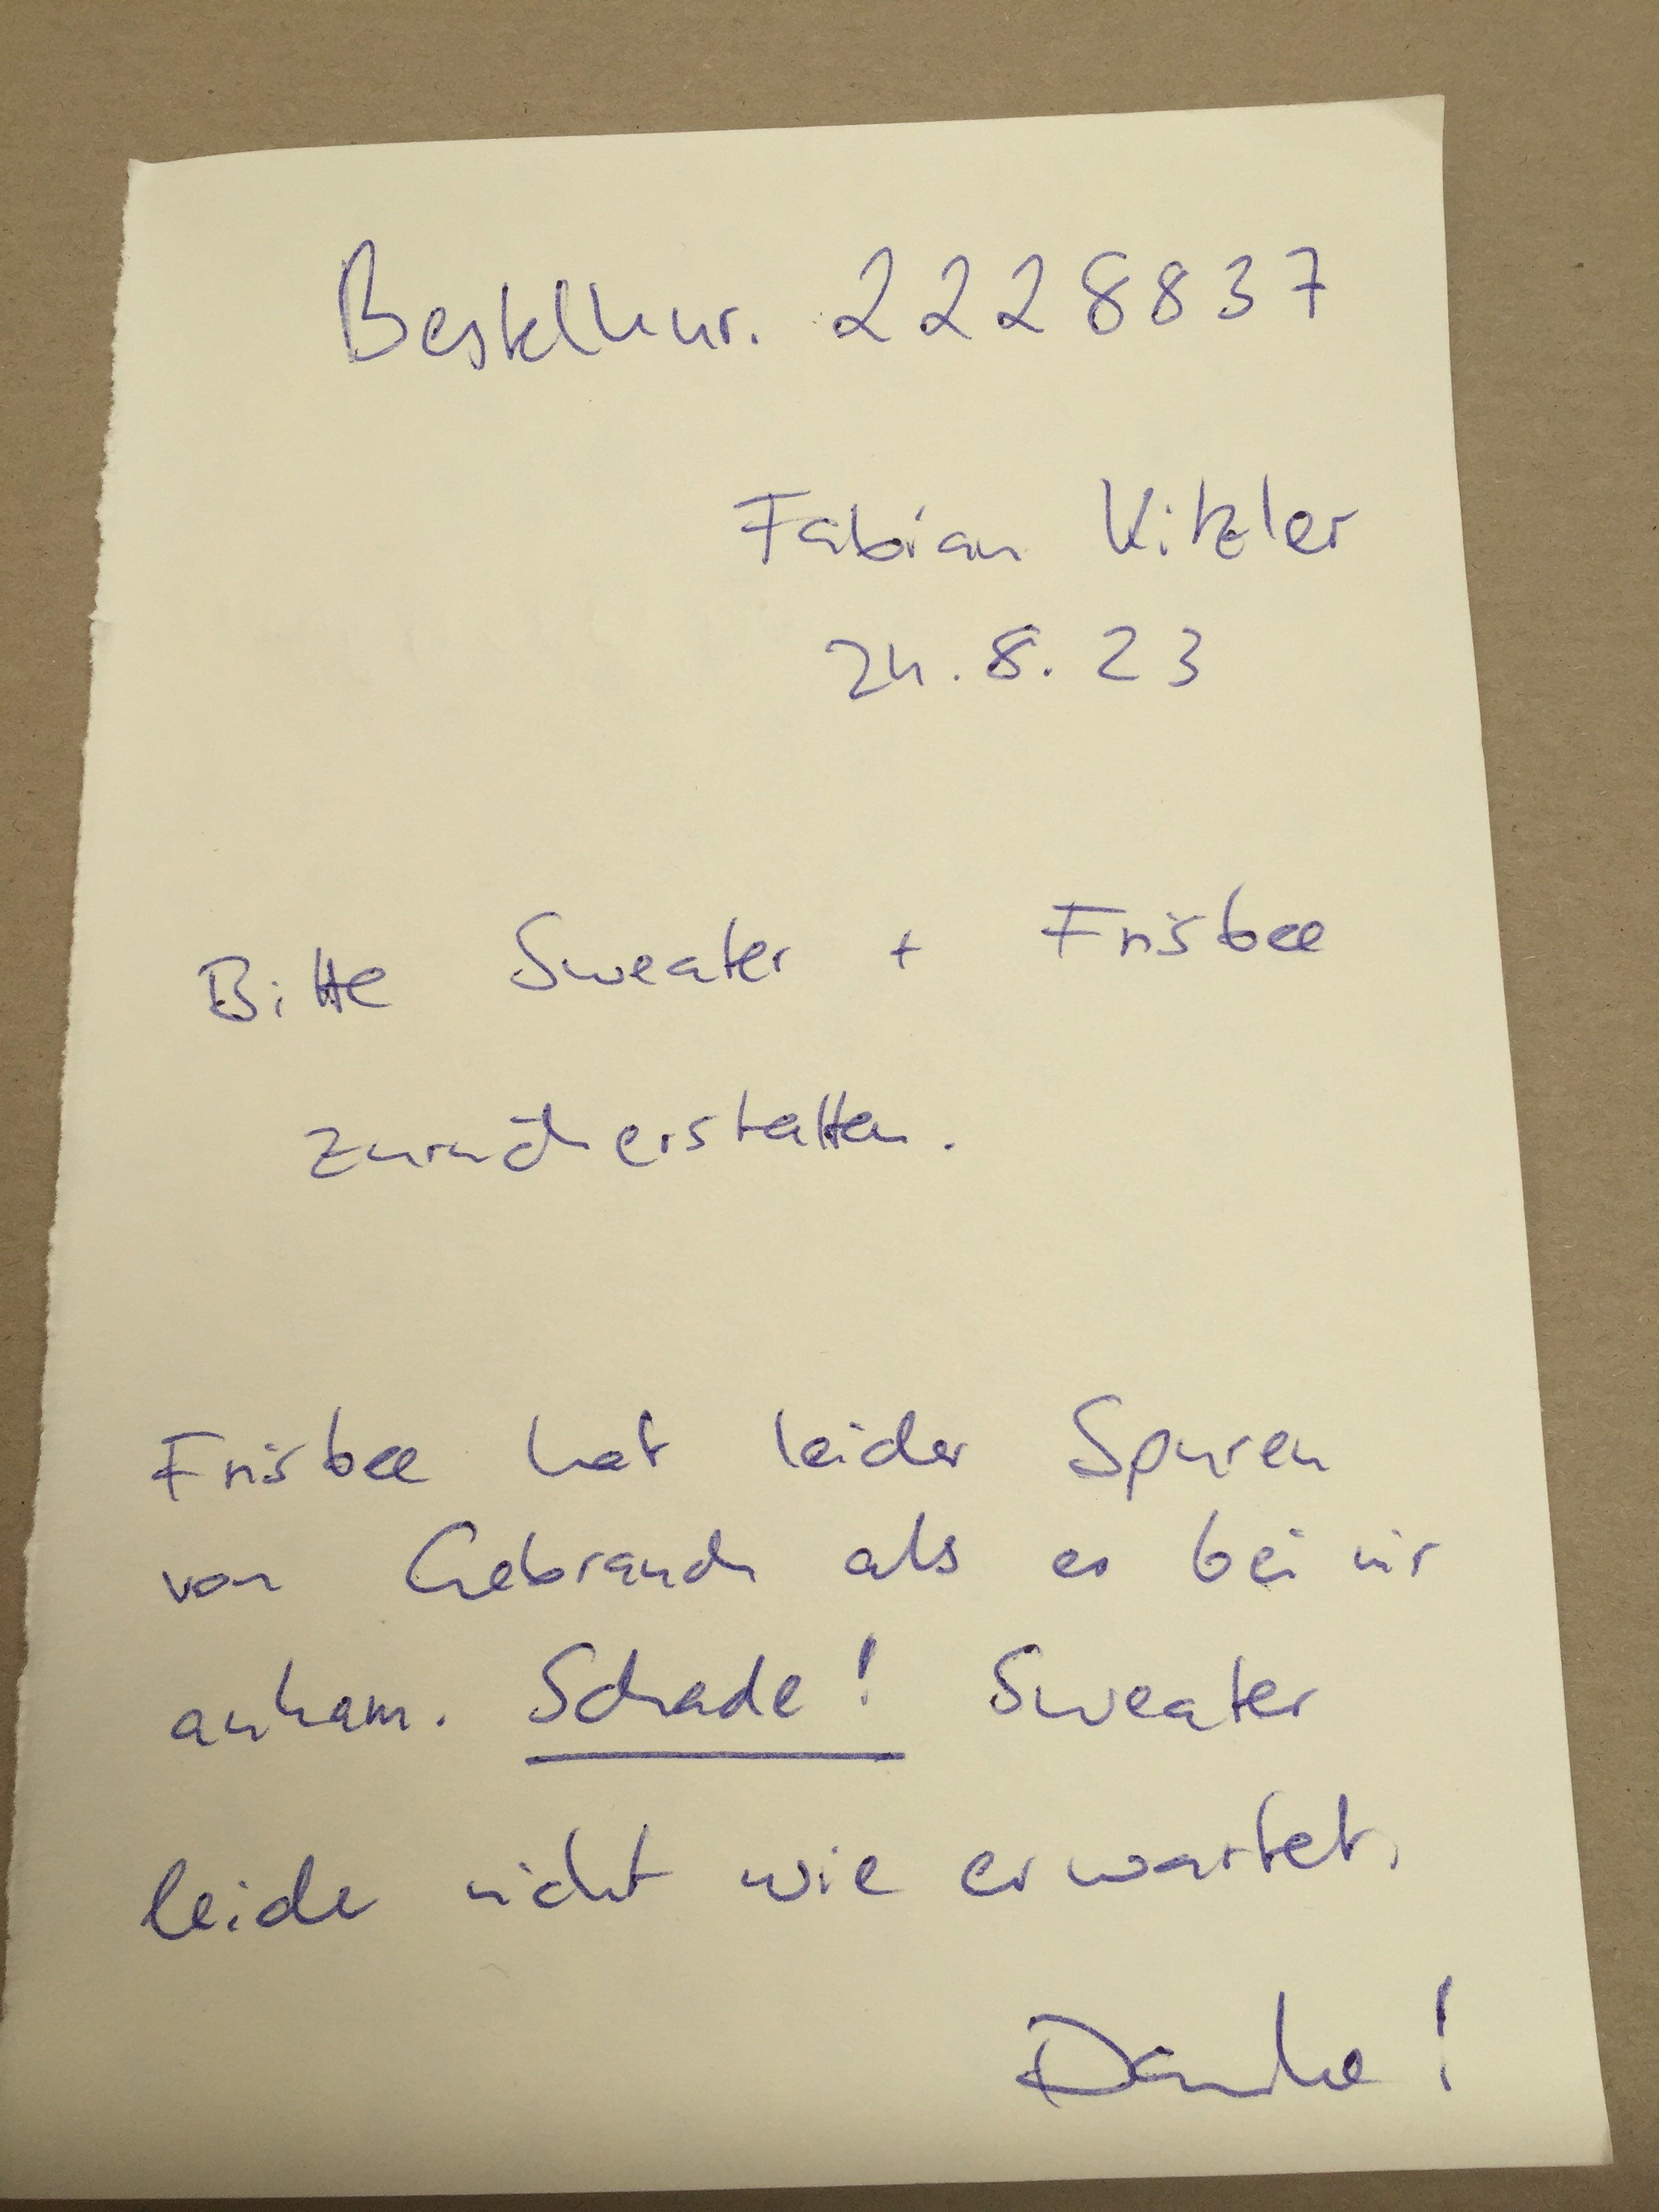 Bestellnr. 2228837
Fabian Kitzler
24.8.23
Bitte Sweater + Frisbee
zurückerstatten.
Frisbee hat leider Spuren
von Gebrauch als es bei mir
ankam. Schade! Sweater
leider nicht wie erwartet.
Danke!